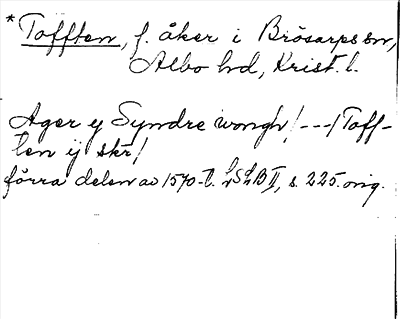 *Tofften, f. åker i Brösarps sn,
Albo hd, Krist. l.
Ager ij Syndre wongh/ --- / Toff-
ten ij skr/
förra delen av 1570-t. LSLB II, s. 225. orig.